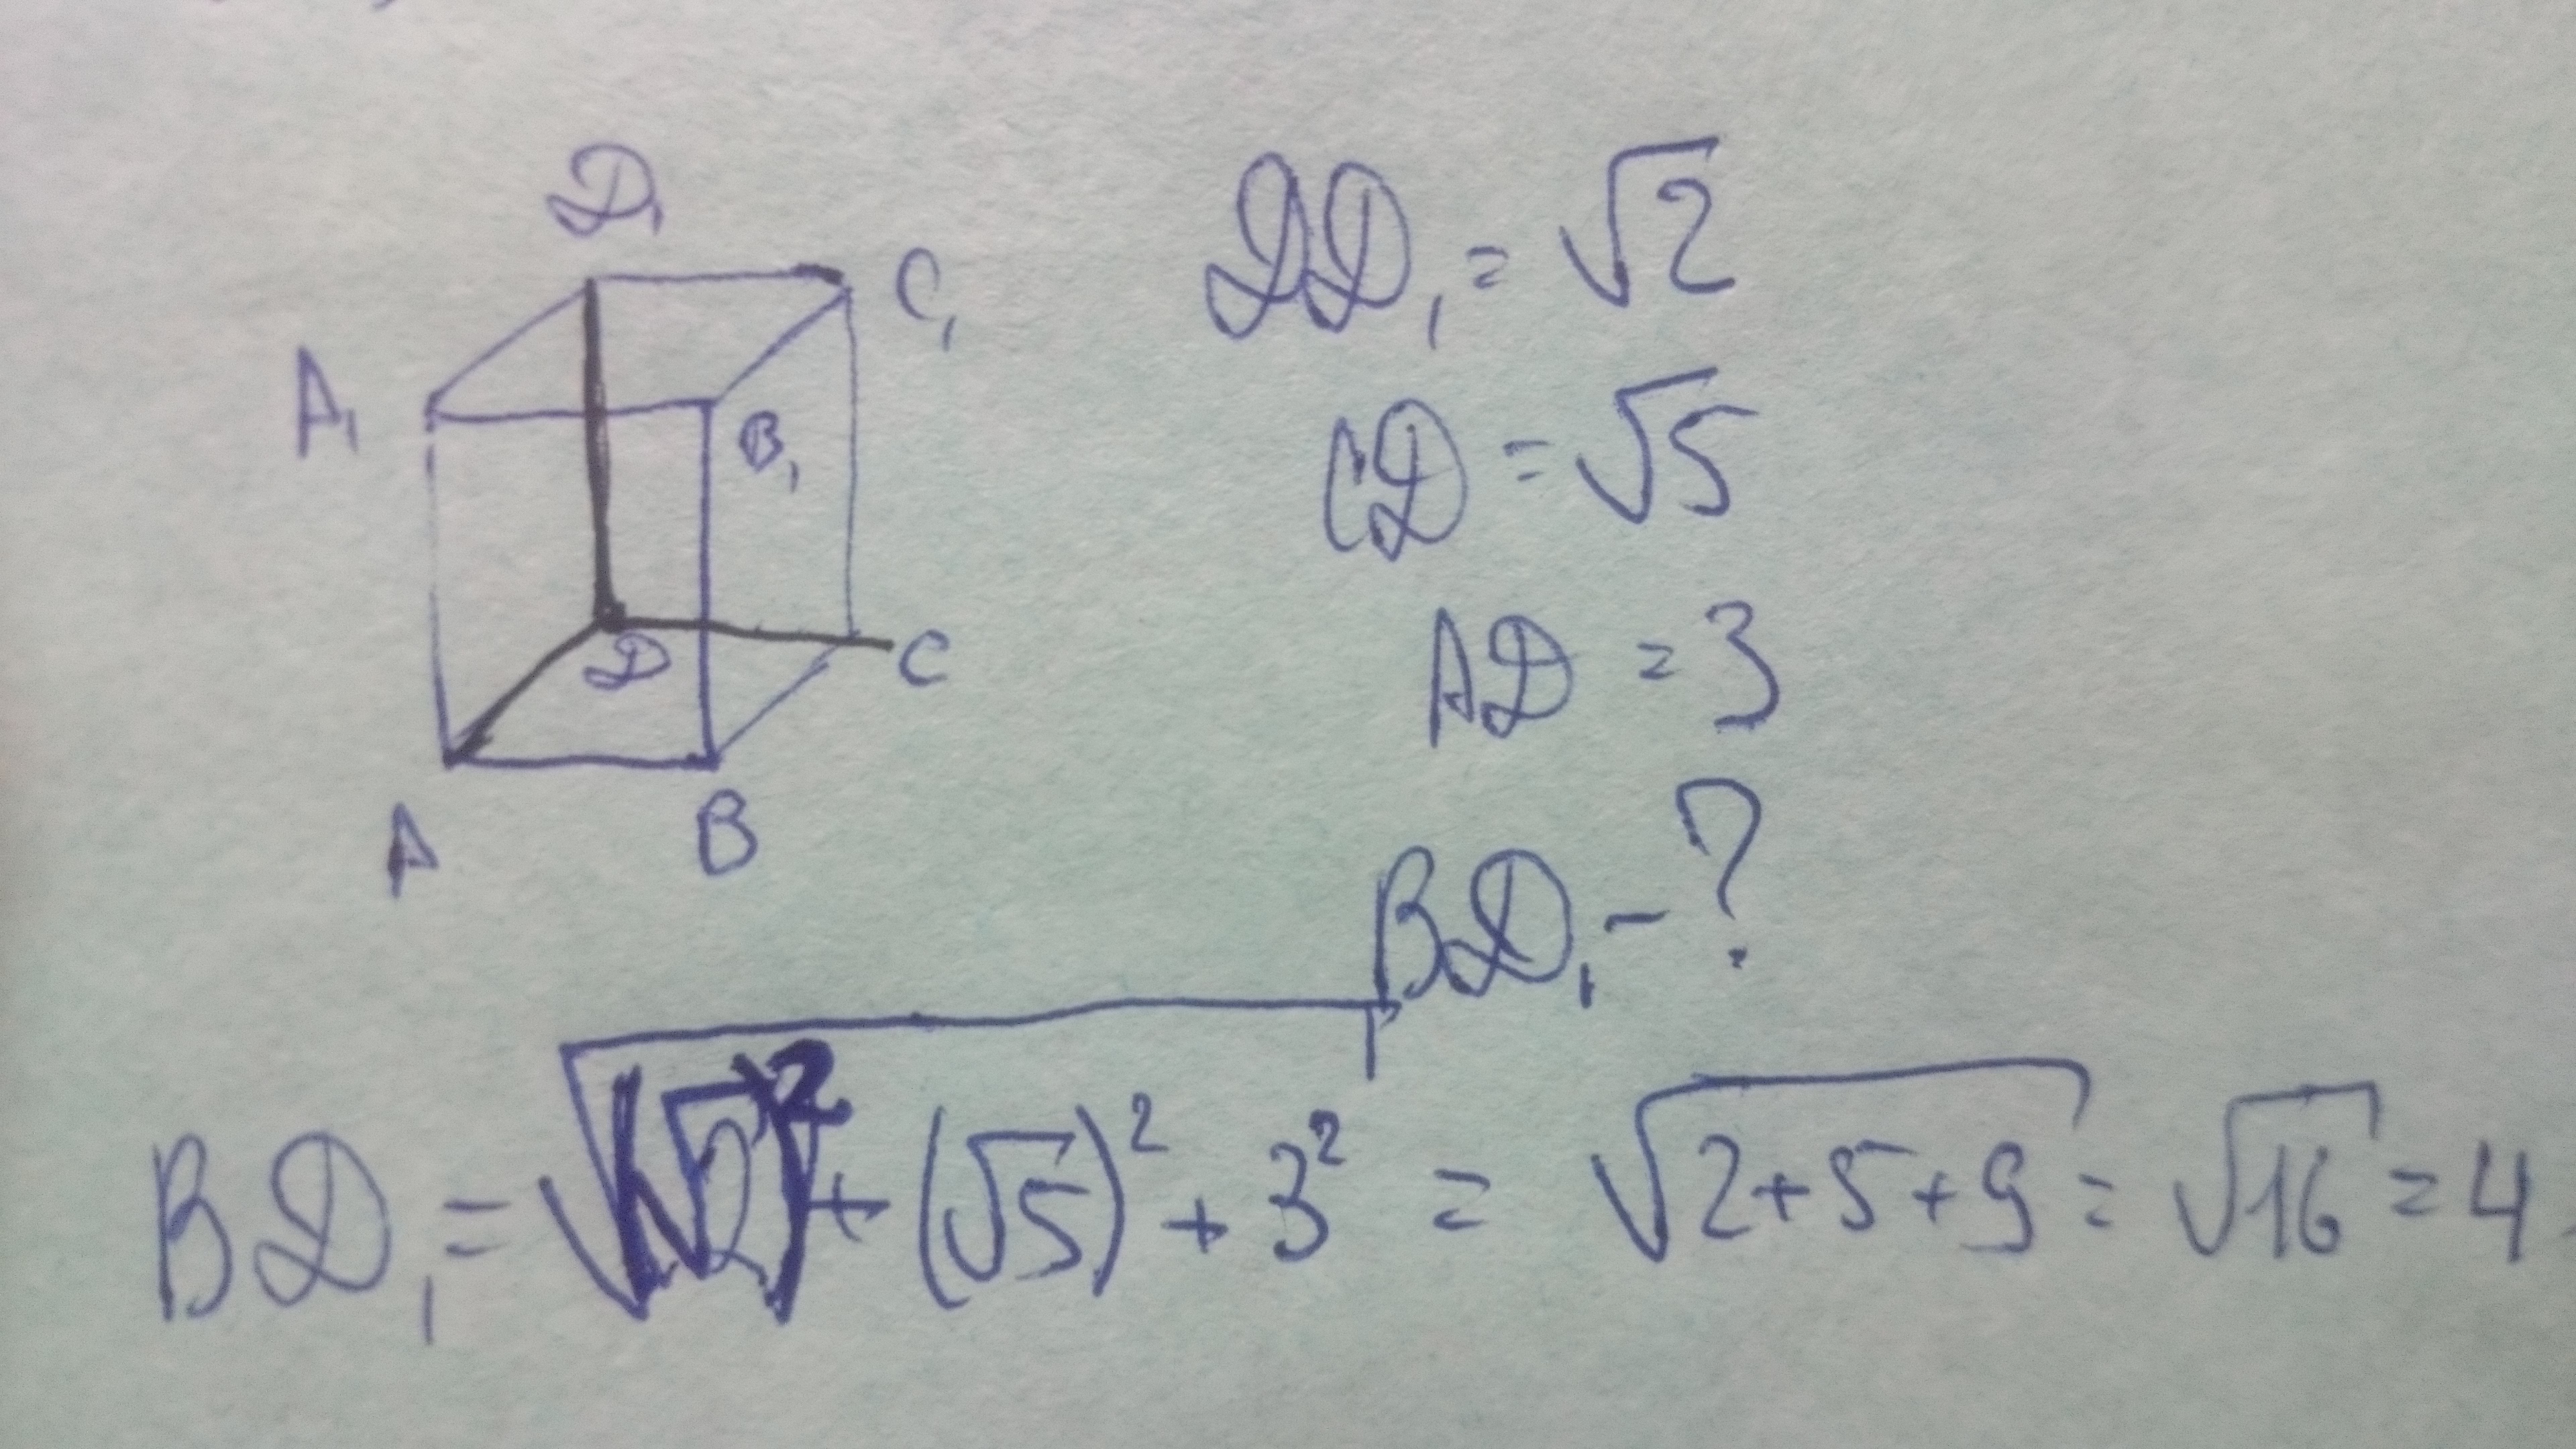 D₁
C₁
A₁
B₁
D
C
A
B
DD₁ = √2
CD = √5
AD = 3
BD₁ - ?
BD₁ = √((√2)² + (√5)² + 3²) = √(2+5+9) = √16 = 4